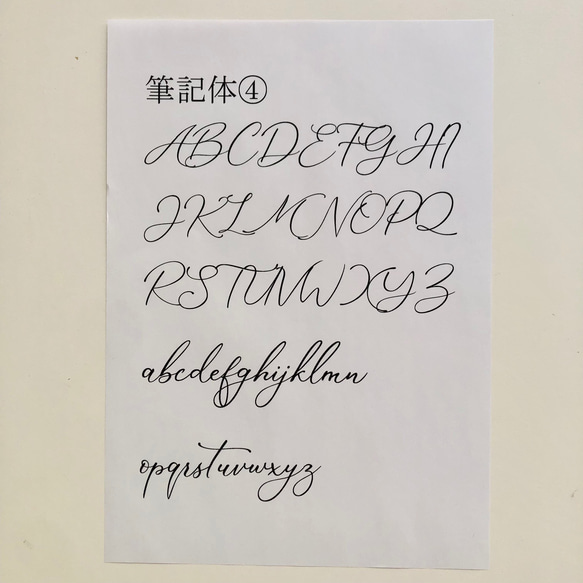 筆記体④
ABCDEFGHI
JKLMNOPQ
RSTUVWXYZ
abcdefghijklmn
opqrstuvwxyz